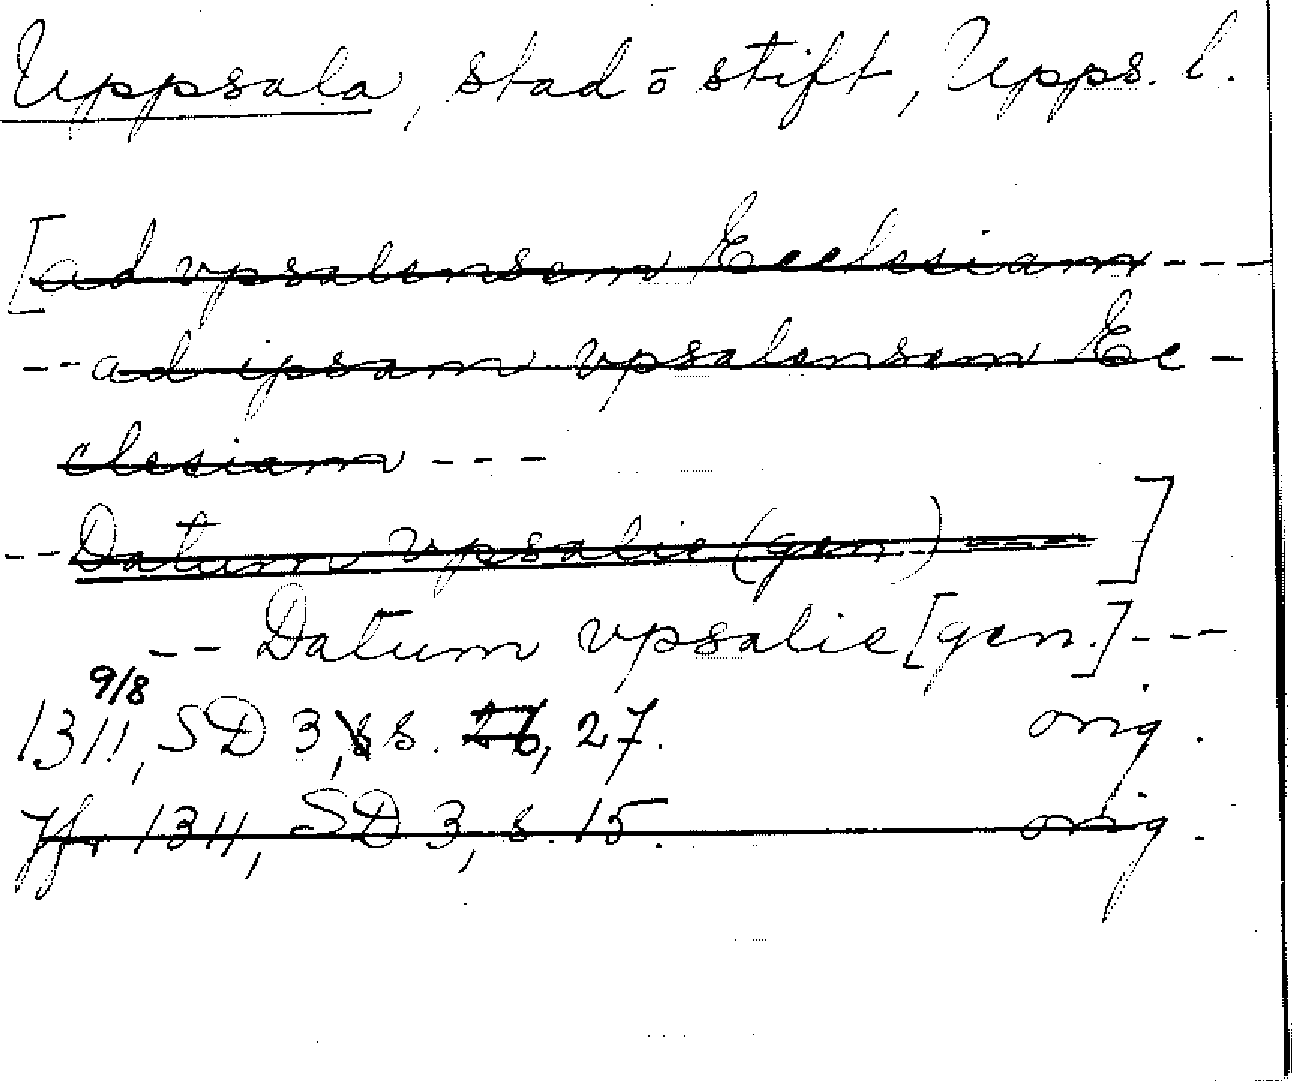 Uppsala, stad o stift, Upps. l.
[ad vpsalensem Ecclesiam ---
-- ad ipsam vpsalensem Ec-
clesiam ---
-- Datum vpsalie (gen) ]
-- Datum vpsalie [gen.] ---
9/8
1311, SD 3, s s. 26, 27. orig.
Jfr 1311, SD 3, s. 15. orig.